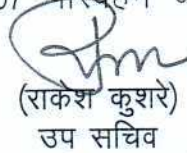 (राकेश कुशरे)
उप सचिव